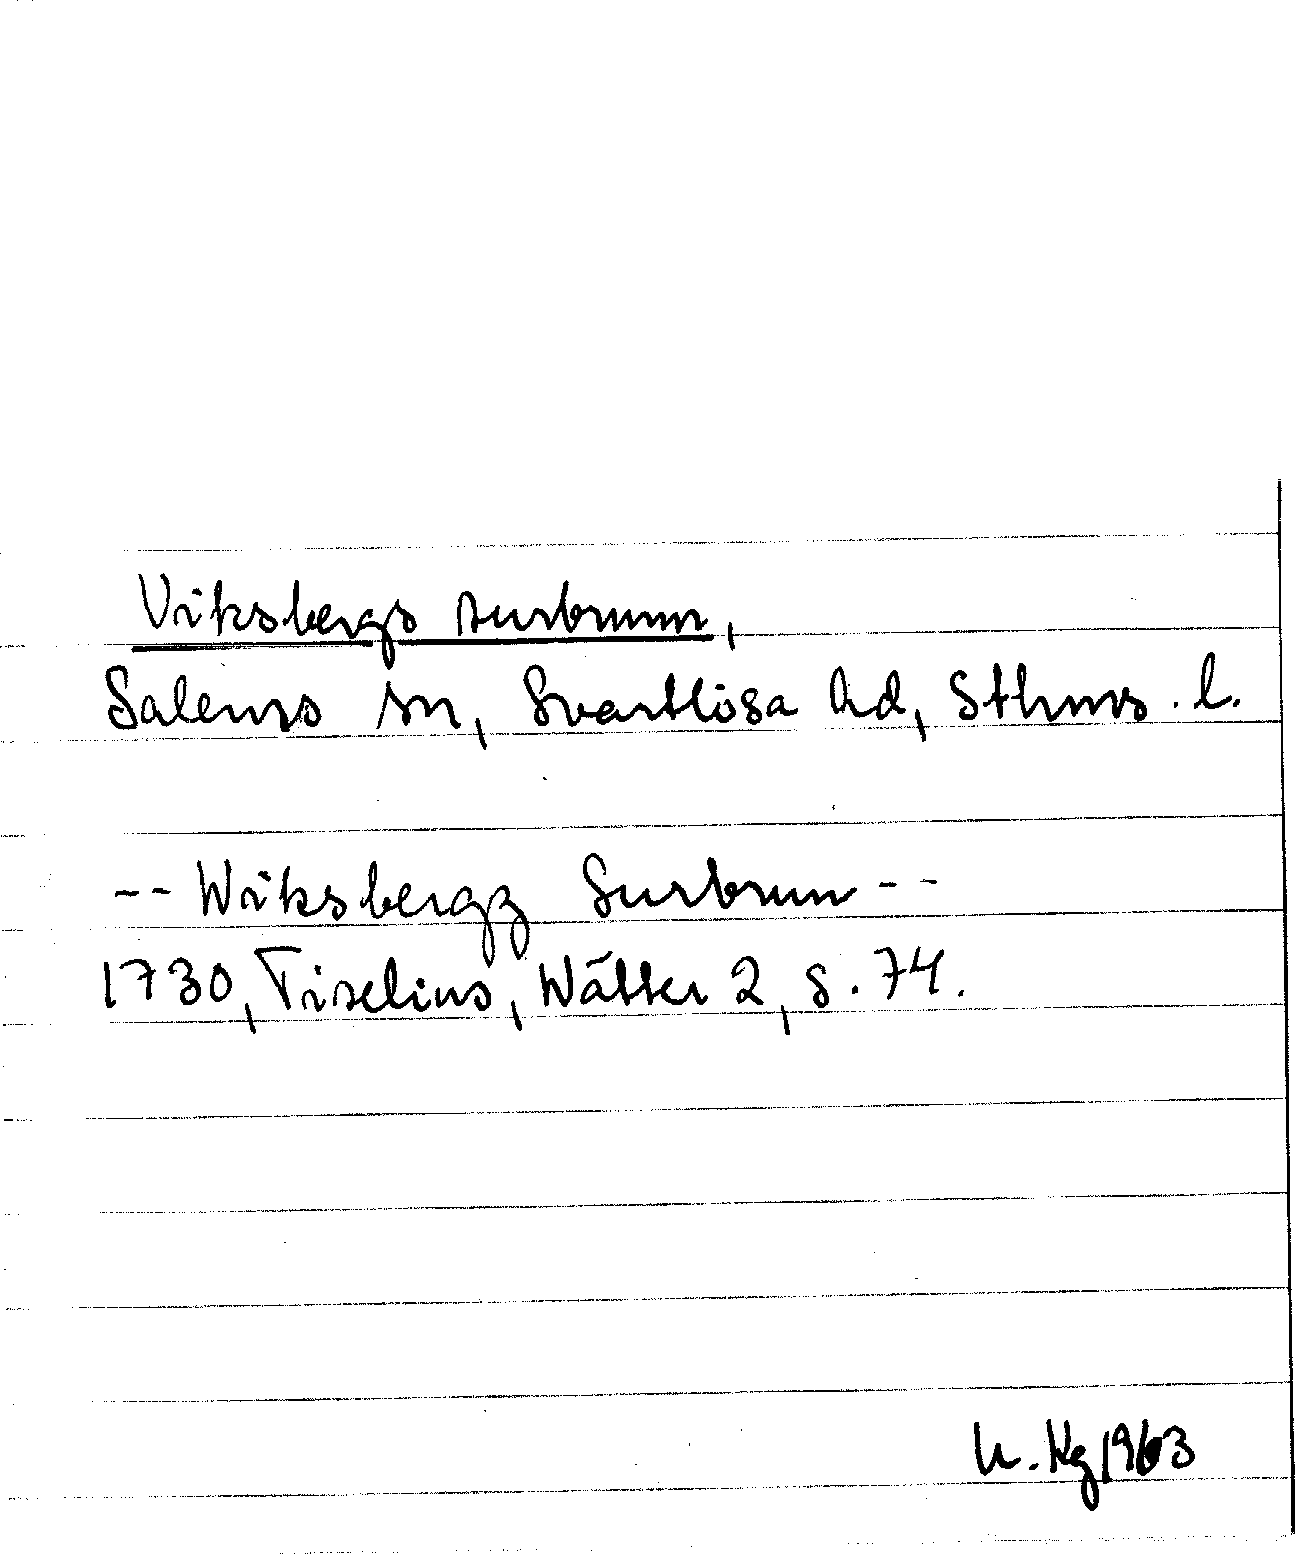 Viksbergs surbrunn,
Salems sn, Svartlösa hd, Sthms. l.
-- Wiksbergz Surbrun --
1730, Tiselius, Wätter 2, s. 74.
Kg 1963